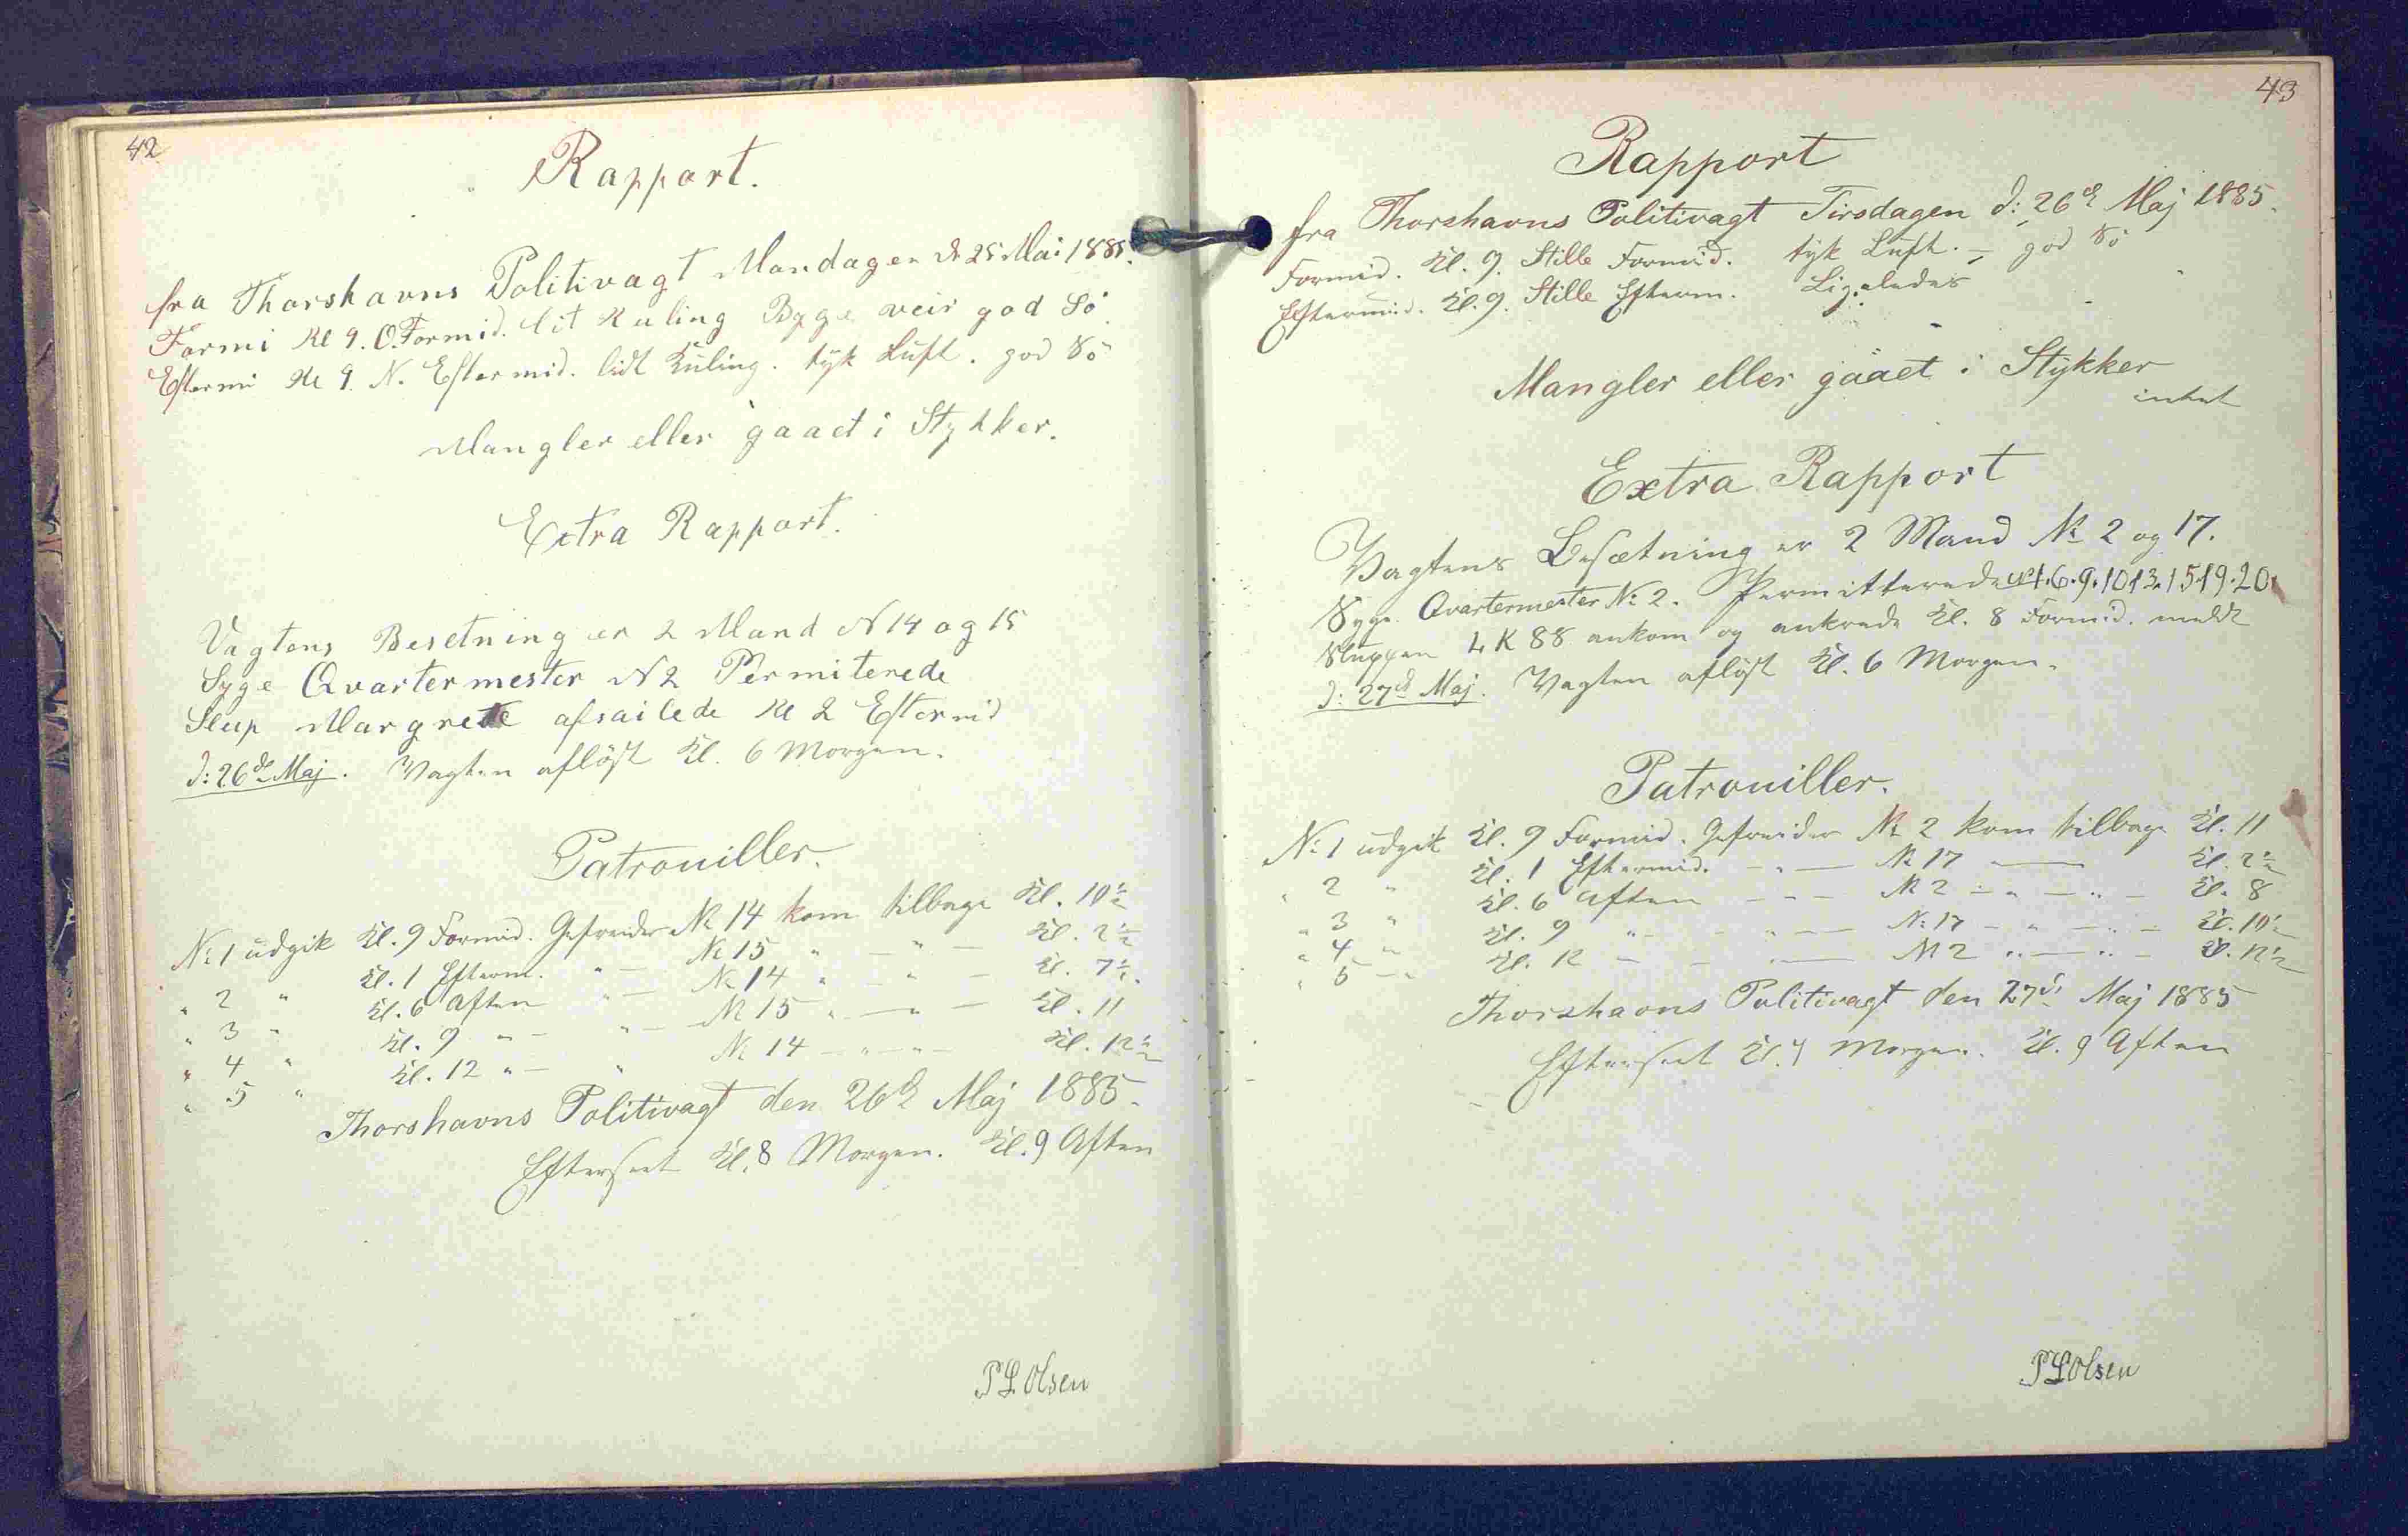 42
Rapport.
fra Thorshavns Politivagt Mandagen d 25 Mai 1885.
Formi Kl 9. O. Formid. lit Kuling Byge veir god Sö.
Eftermi Kl 9. N. Eftermid. lidt Kuling. tyk Luft. god Sö
Mangler eller gaaet i Stykker.
Extra Rapport.
Vagtens Besetning er 2 Mand N 14 og 15
Syge Qvartermester N 2 Permiterede
Slup Margrete afsailede Kl 2 Eftermid
d: 26de Maj. Vagten aflöst Kl. 6 Morgen.
Patrouiller.
No 1 udgik Kl. 9 Formid. Gefreider No 14 kom tilbage Kl. 10½
" 2 " Kl. 1 Efterm. " — No 15 " — " — Kl. 2½
" 3 " Kl. 6 Aften " — No 14 " — " — Kl. 7½.
" 4 " Kl. 9 " — " — No 15 " — " — Kl. 11
" 5 " Kl. 12 " — " No 14 — " — " — Kl. 12½
Thorshavns Politivagt den 26d Maj 1885.
Efterseet Kl. 8 Morgen. Kl. 9 Aften
P L Olsen
43
Rapport
fra Thorshavns Politivagt Tirsdagen d: 26d Maj 1885.
Formid. Kl. 9. Stille Formid. tyk Luft. — god Sö
Eftermid. Kl. 9. Stille Efterm. Ligeledes
Mangler eller gaaet i Stykker
intet
Extra Rapport
Vagtens Besætning er 2 Mand No 2 og 17.
Syge Qvartermester No 2. Permitterede No 4. 6. 9. 10 13. 15 19. 20.
Sluppen L K 88 ankom og ankrede Kl. 8 Formid. meldt
d: 27d Maj. Vagten aflöst Kl. 6 Morgen.
Patrouiller.
No 1 udgik Kl. 9 Formid. Gefreider No 2 kom tilbage Kl. 11
" 2 " Kl. 1 Eftermid. — " — No 17 — Kl. 2½
" 3 " Kl. 6 Aften — " — No 2 — " — " — Kl. 8
" 4 " Kl. 9 " — " — No 17 — " — " — Kl. 10½
" 5 — " Kl. 12 — — " — No 2 " — " — Kl. 12½
Thorshavns Politivagt den 27d Maj 1885
Efterseet Kl. Morgen. Kl. 9 Aften
P L Olsen